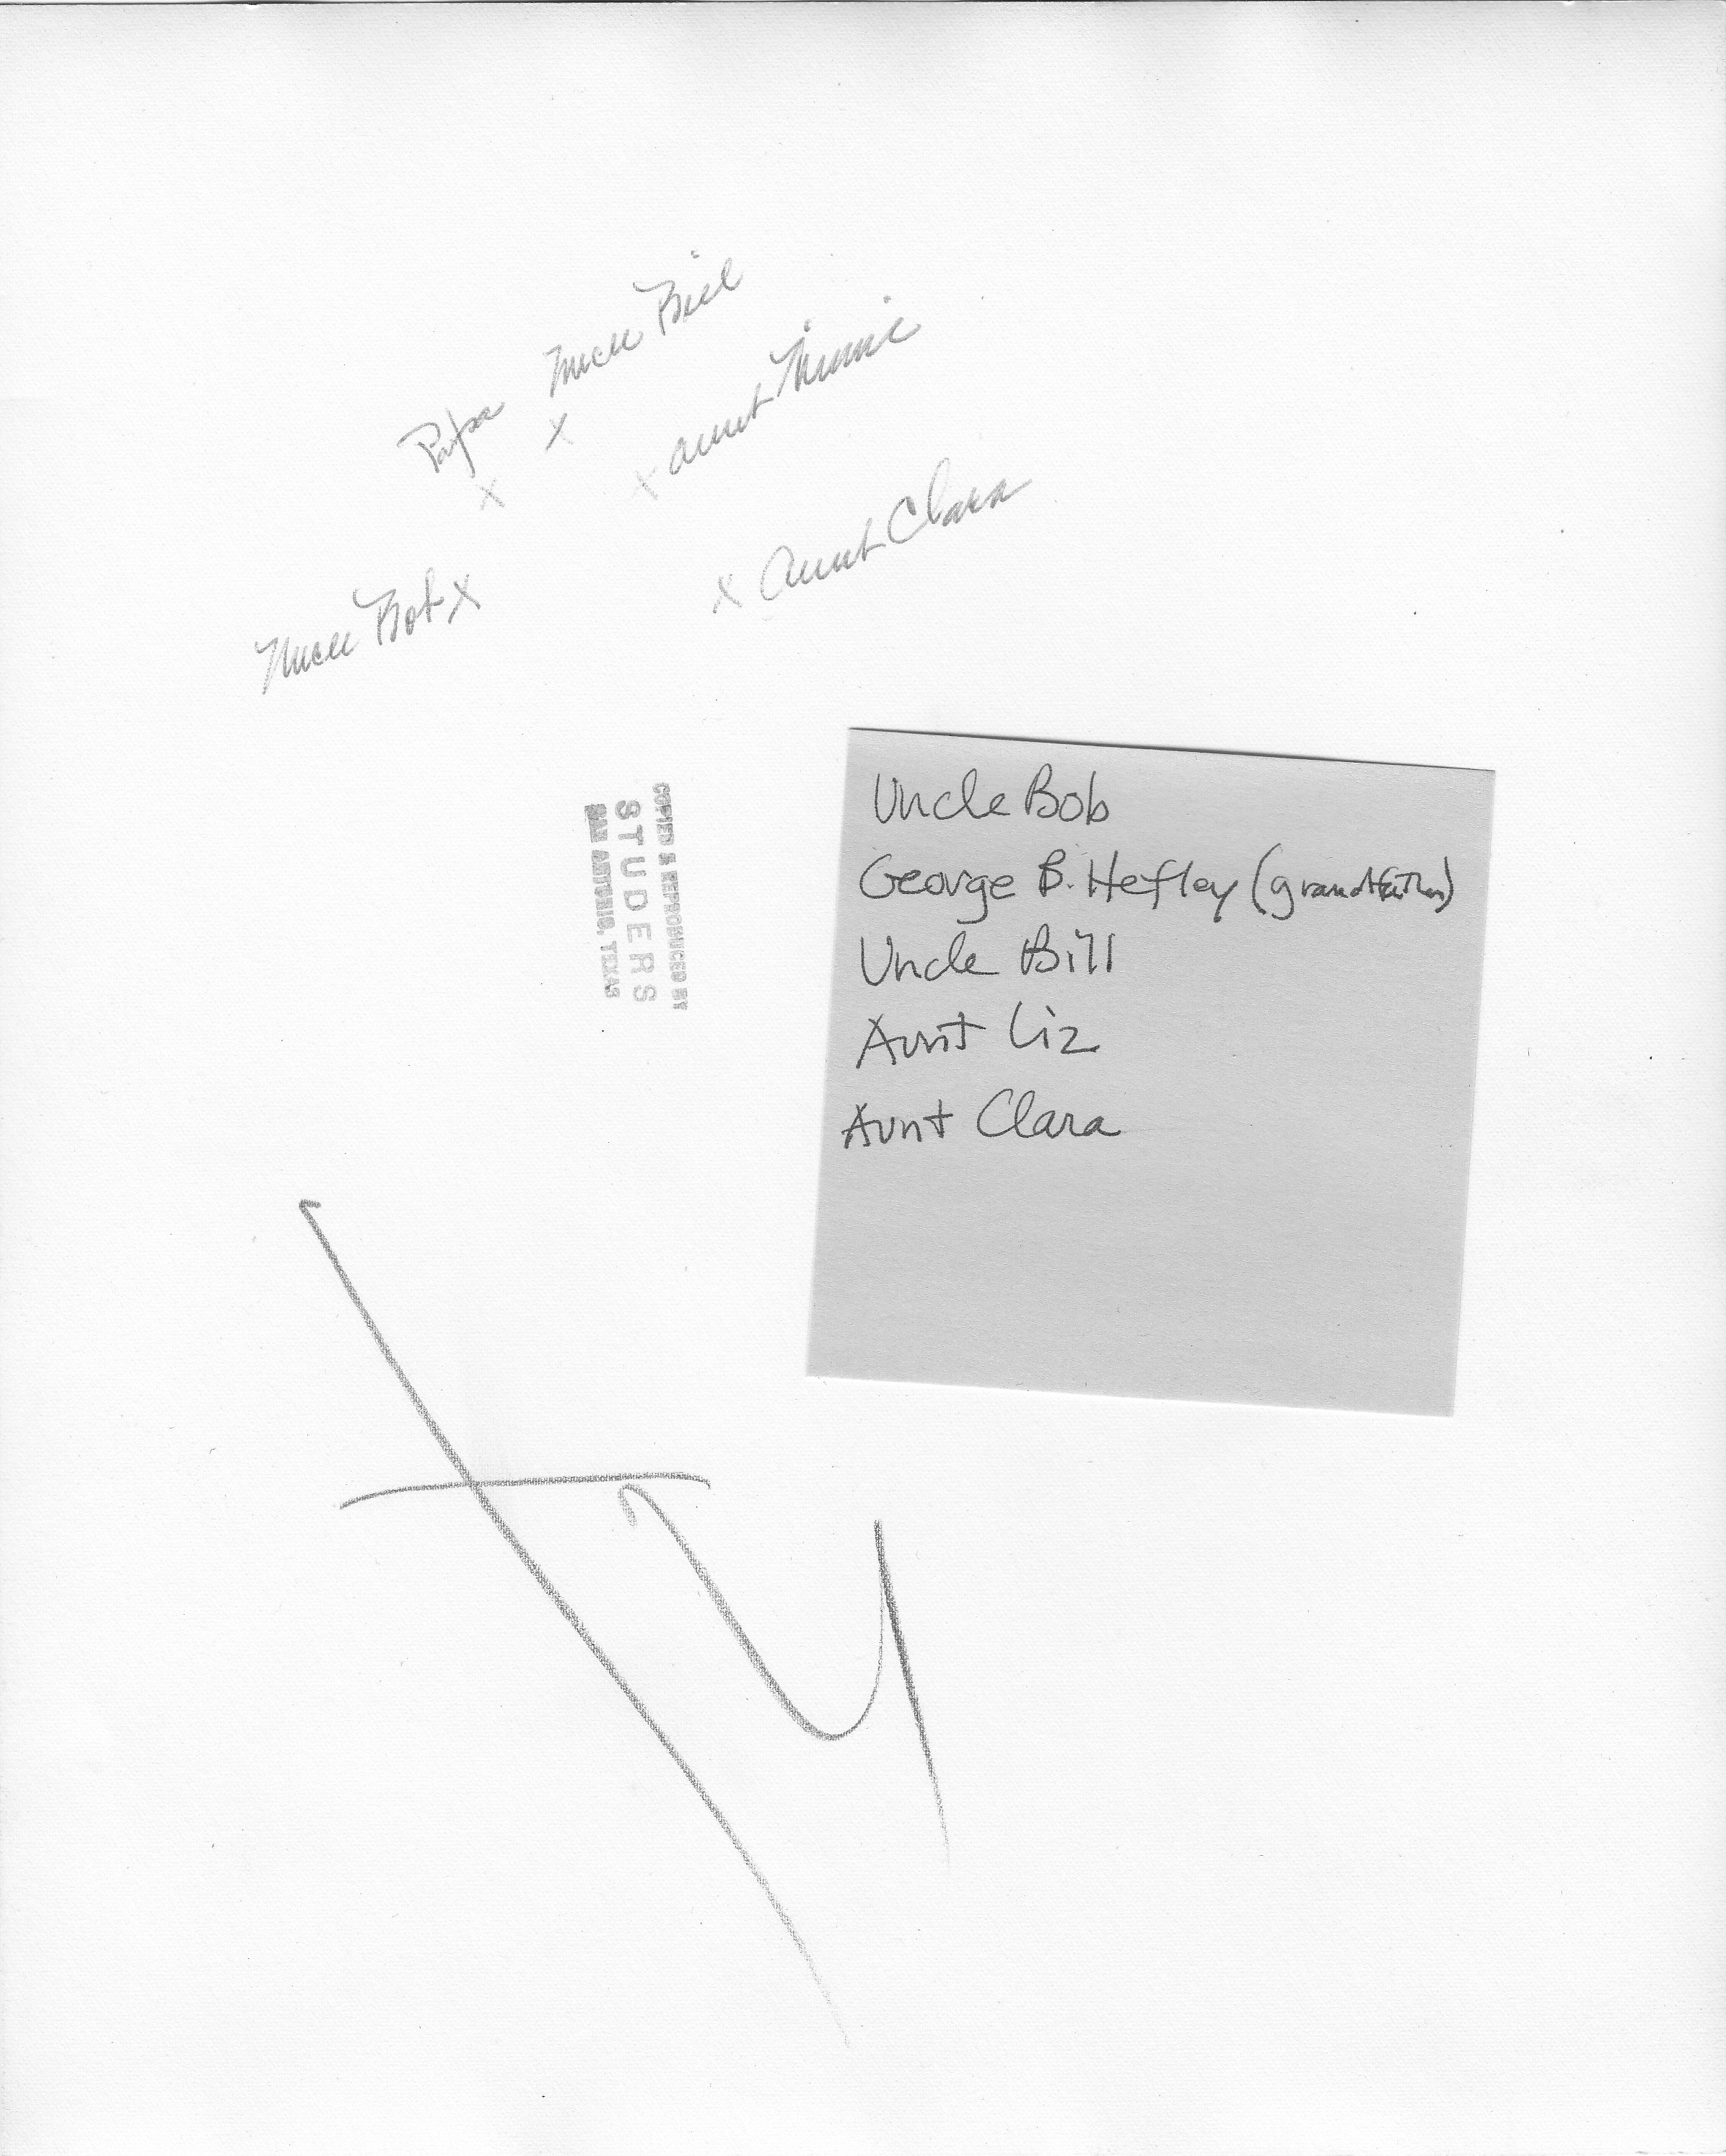 Uncle Bill
Papa
x
x
x Aunt Minnie
x Aunt Clara
Uncle Bob x
COPIED & REPRODUCED BY
STUDERS
SAN ANTONIO, TEXAS
Uncle Bob
George B. Hefley (grandfather)
Uncle Bill
Aunt Liz
Aunt Clara